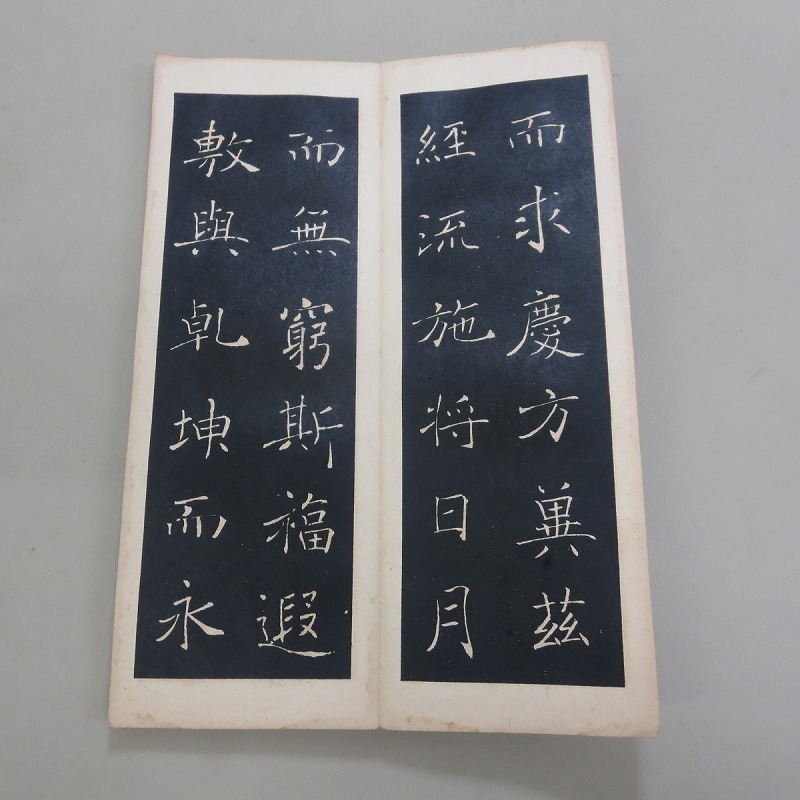 而求慶方冀茲
經流施将日月
而無窮斯福遐
敷與乹坤而永